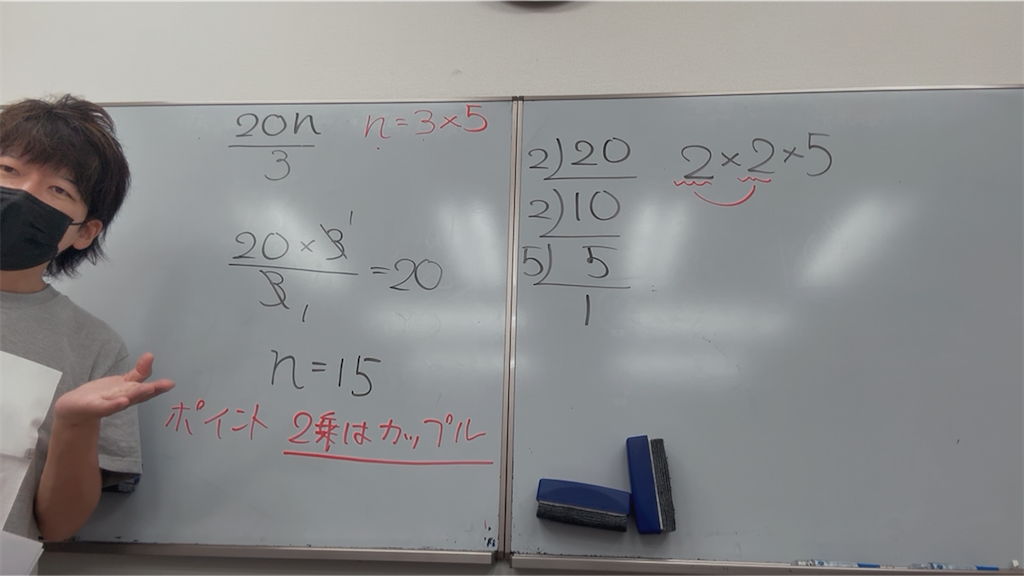 20n
3
n=3×5
20×3 1
3 1
=20
n=15
ポイント 2乗はカップル
2)20
2)10
5) 5
1
2×2×5